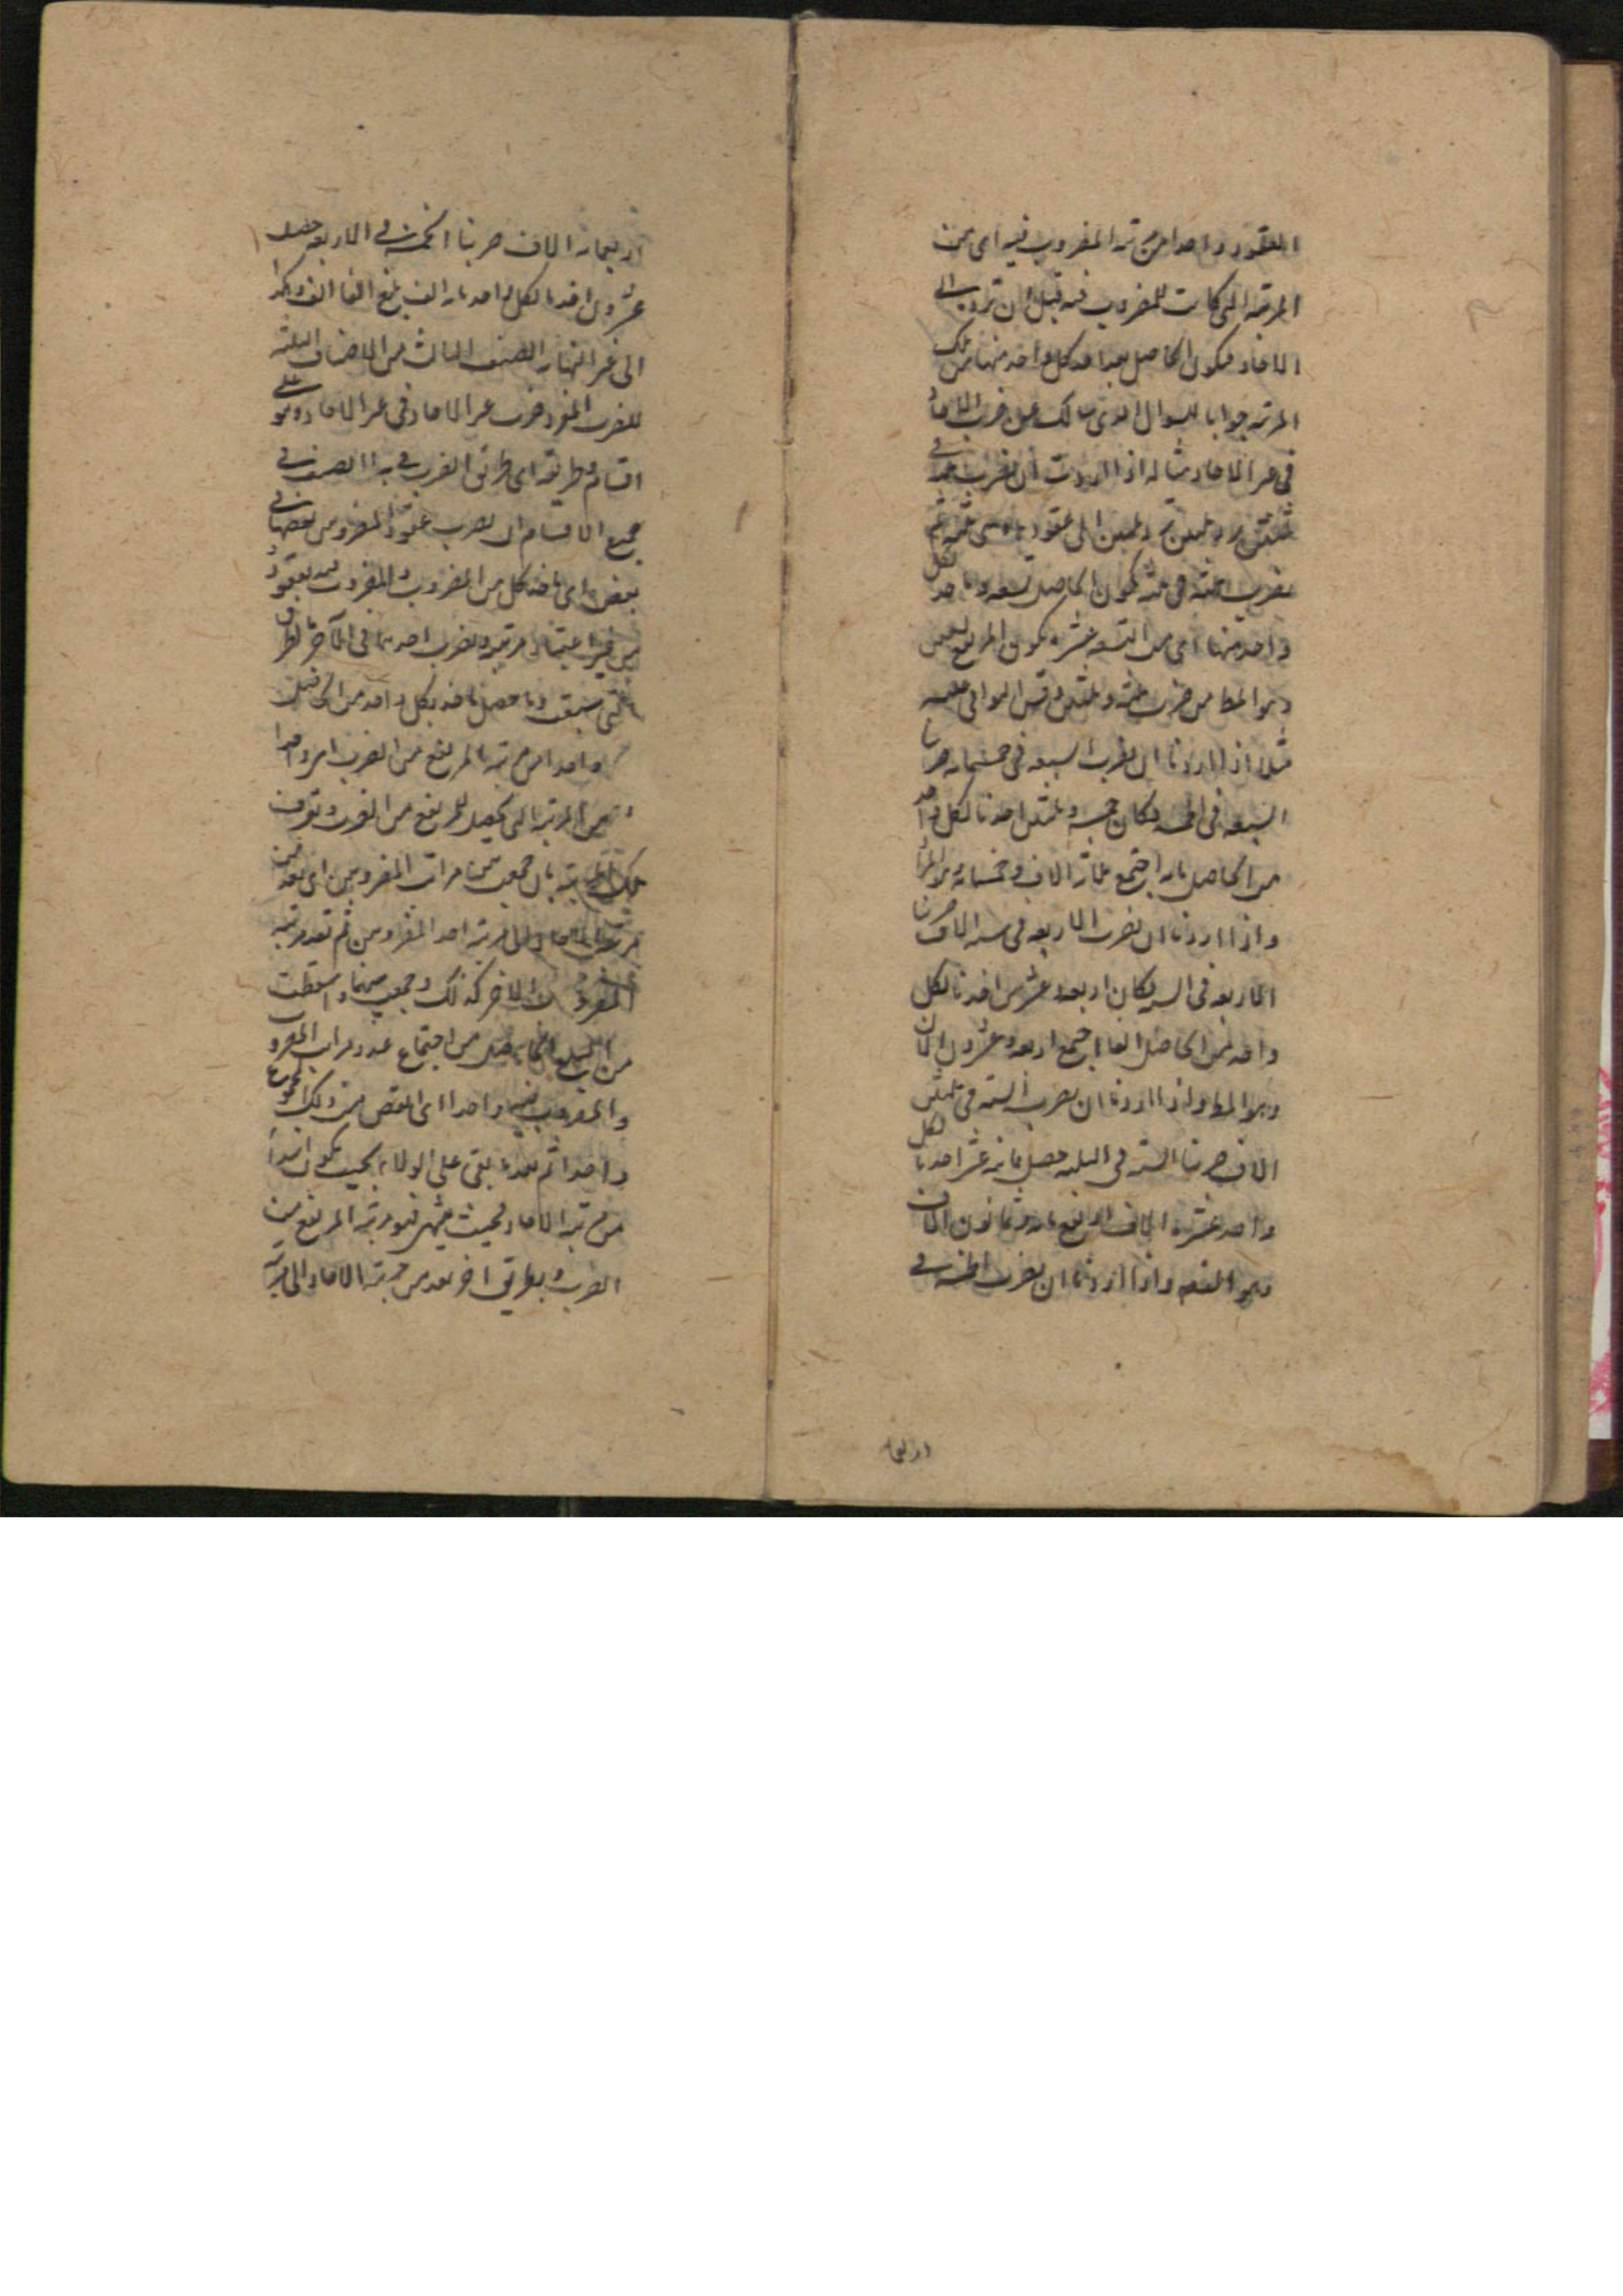 العقود واحدا من مرتبة المضروب فيه اى من
المرتبة التى كانت للمضروب فيه قبل ان ترد الى
الاحاد فيكون الحاصل بعد اخذ كل واحد منها من تلك
المرتبة جوابا للسوال الذى سالك عن ضرب الاحاد
فى غير الاحاد مثاله اذا اردت ان تضرب ثلثة فى
ثلثين ترد ثلثين الى عقوده وهى ثلثة ثم
تضرب الثلثة فى ثلثة يكون الحاصل تسعة وتاخذ لكل
واحد منها اى من التسعة عشرة يكون المرتفع تسعين
وهو المط من ضرب ثلثة فى ثلثين وقس البواقى عليه
مثلا اذا اردنا ان نضرب السبعة فى خمسمائة ضربنا
السبعة فى الخمسة فكان خمسة وثلثين اخذنا لكل واحد
من الحاصل مائة اجتمع ثلثة الاف وخمسمائة وهو المراد
واذا اردنا ان نضرب الاربعة فى ستة الاف ضربنا
الاربعة فى الستة كان اربعة وعشرين اخذنا لكل
واحد من الحاصل الفا اجتمع اربعة وعشرون الفا
وهو المط واذا اردنا ان نضرب الستة فى ثلثين
الاف ضربنا الستة فى الثلثة حصل ثمانية عشر اخذنا لكل
واحد عشرة الاف ارتفع مائة وثمانون الفا
وهو المقصد واذا اردنا ان نضرب الخمسة فى
اربعمائة
اربعمائة الاف ضربنا الخمسة فى الاربعة حصل
عشرون اخذنا لكل واحد مائة الف بلغ الفا الف وهكذا
الى غير النهاية الصنف الثالث من الاصناف الثلثة
للضرب المفرد ضرب غير الاحاد فى غير الاحاد وهو على
اقسام وطريقه اى طريق الضرب فى هذا الصنف فى
جميع الاقسام ان تضرب عقود المضروبين بعضها فى
بعض اى تاخذ كل من المضروب والمضروب فيه بعقوده
من غير اعتبار مرتبة وتضرب احدهما فى الآخر بالطريق
التى سبق وما حصل تاخذ بكل واحد من الحاصل
واحدا من مرتبة المرتفع من الضرب اى واحدا
من المرتبة التى تحصل للمرتفع من الضرب وتعرف
تلك المرتبة بان تجمع بين مراتب المضروبين اى تعد من
مرتبة الاحاد الى مرتبة احد المضروبين ثم تعد مرتبة
المضروب الاخر كذلك وتجمع بينهما واسقطت
من المبلغ الحاصل من اجتماع عدد مراتب المضروب
والمضروب فيه واحدا اى تنقص من ذلك المجموع
واحدا ثم تعد ما بقى على الولاء بحيث يكون ابتداء
من مرتبة الاحاد فحيث ينتهى فهو مرتبة المرتفع من
الضرب وبطريق اخر تعد من مرتبة الاحاد الى مرتبة